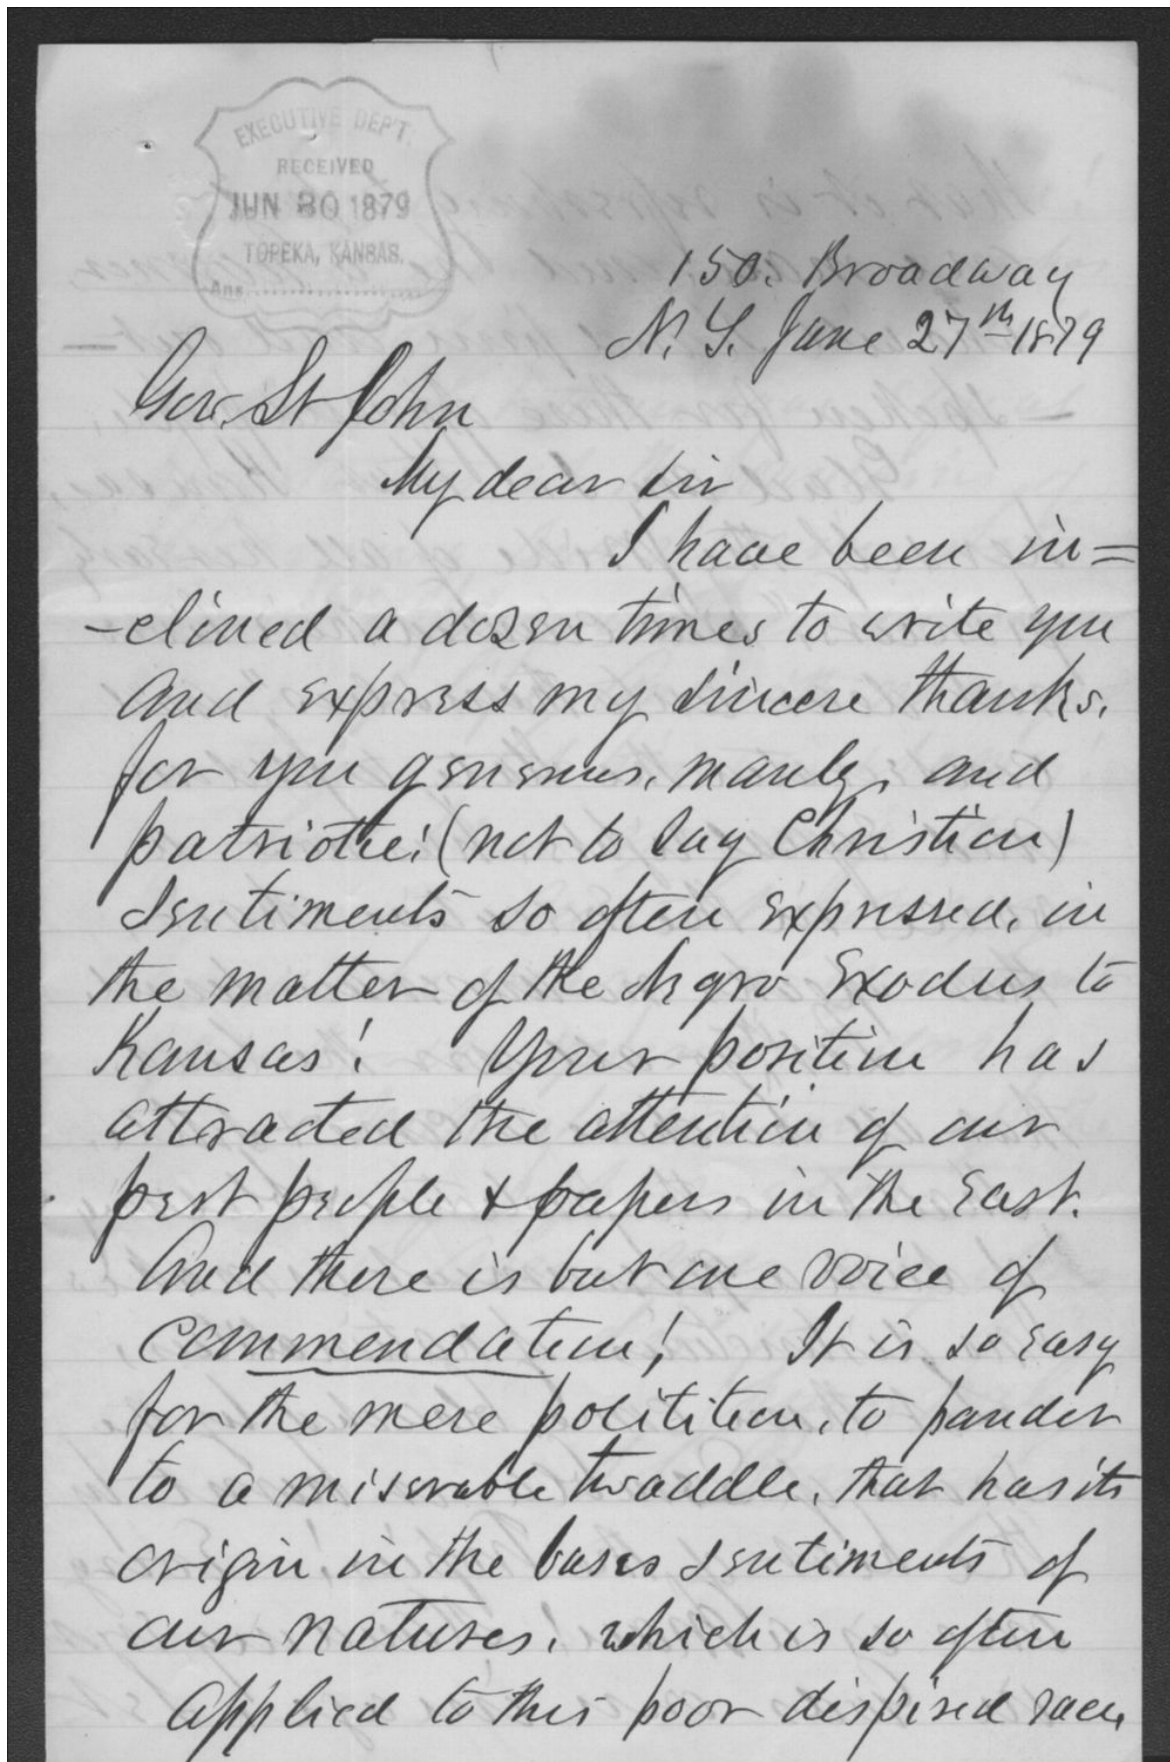 EXECUTIVE DEP'T.
RECEIVED
JUN 30 1879
TOPEKA, KANSAS.
Ans.
150. Broadway
N. Y. June 27th 1879
Gov. St John
My dear Sir
I have been in=
-clined a dozen times to write you
and express my sincere thanks.
for you generous, manly, and
patriotic! (not to say Christian)
sentiments so often expressed, in
the matter of the Negro Exodus to
Kansas! Your position has
attracted the attention of our
best people & papers in the East.
And there is but one voice of
commendation! It is so easy
for the mere politition, to pander
to a miserable twaddle, that has its
origin in the bases sentiments of
our natures, which is so often
applied to this poor dispised race,